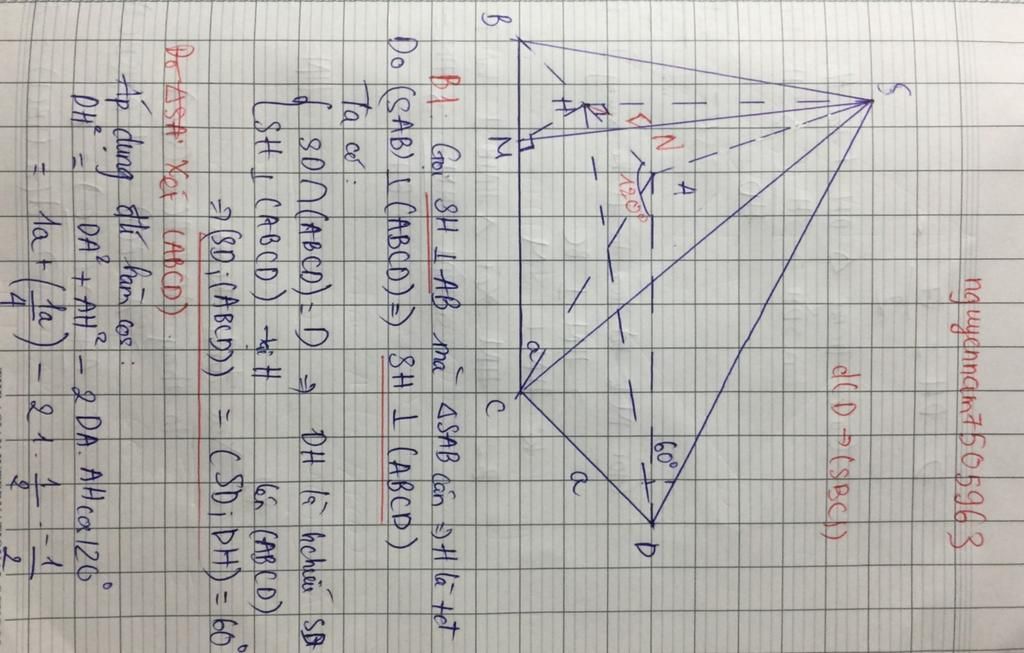 nguyennam7505963
d(D → (SBC))
S
B
H
M
N
A
120°
60°
D
C
a
a
B1: Gọi SH ⊥ AB mà ΔSAB cân ⇒ H là
Do (SAB) ⊥ (ABCD) ⇒ SH ⊥ (ABCD)
Ta có:
{ SD ∩ (ABCD) = D ⇒ DH là hchiếu SD
{ SH ⊥ (ABCD) tại H lên (ABCD)
⇒ (SD; (ABCD)) = (SD; DH) = 60°
Do ΔSA Xét (ABCD)
Áp dụng đlí hàm cos:
DH² = DA² + AH² - 2 DA. AH cos 120°
= 1a + (1a/4) - 2 1. 1/2 . -1/2